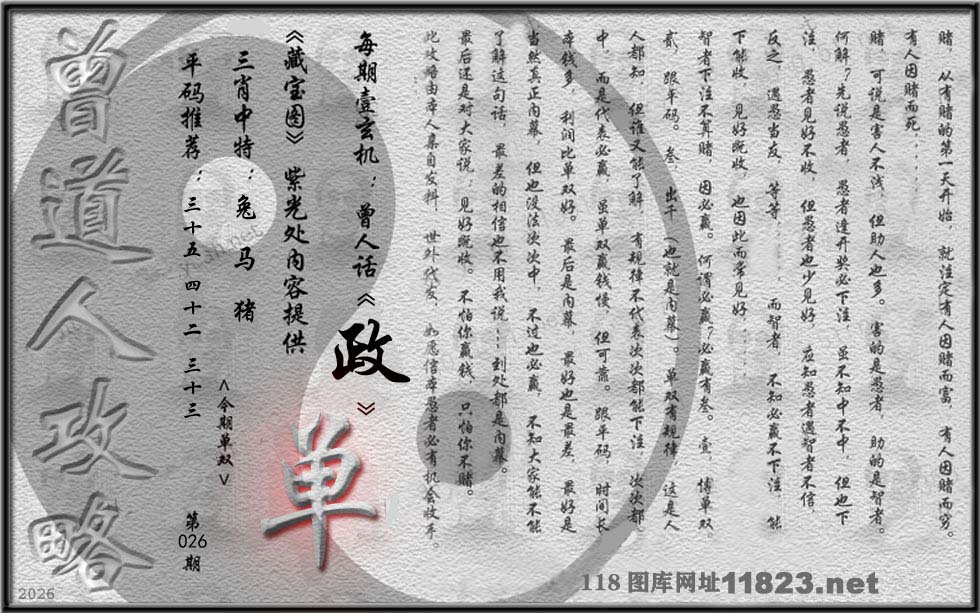 赌，从有赌的第一天开始，就注定有人因赌而富，有人因赌而穷。
有人因赌而死......
赌，可说是害人不浅，但助人也多。害的是愚者，助的是智者。
何解？先说愚者，愚者逢开奖必下注，虽不知中不中，但也下
注，愚者见好不收，但愚者也少见好，应知愚者遇智者不信，
反之，遇愁当友，等等......而智者，不知必赢不下注，能
下能收，见好既收，也因此而常见好....
智者下注不算赌，因必赢。何谓必赢？必赢有叁。壹，博单双，
贰，跟平码。叁，出千（也就是内幕）。单双有规律，这是人
人都知，但谁又能了解，有规律不代表次次都能下注，次次都
中，而是代表必赢，虽单双赢钱慢，但可靠。跟平码，时间长，
本钱多，利润比单双好。最后是内幕，最好也是最差，最好是
当然真正内幕，但也没法次次中，不过也必赢，不知大家能不能
了解这句话，最差的相信也不用我说---到处都是内幕。
最后还是对大家说：见好既收。不怕你赢钱，只怕你不赌。
此攻略由本人集自发料，世外代友，如愿信本愚者必有机会收手。
每期壹玄机：曾人话《政》
《藏宝图》紫光处内容提供
三肖中特：兔 马 猪
平码推荐：三十五 四十二 三十三
<今期单双>
单
第
026
期
曾道人攻略
118图库网址11823.net
2026